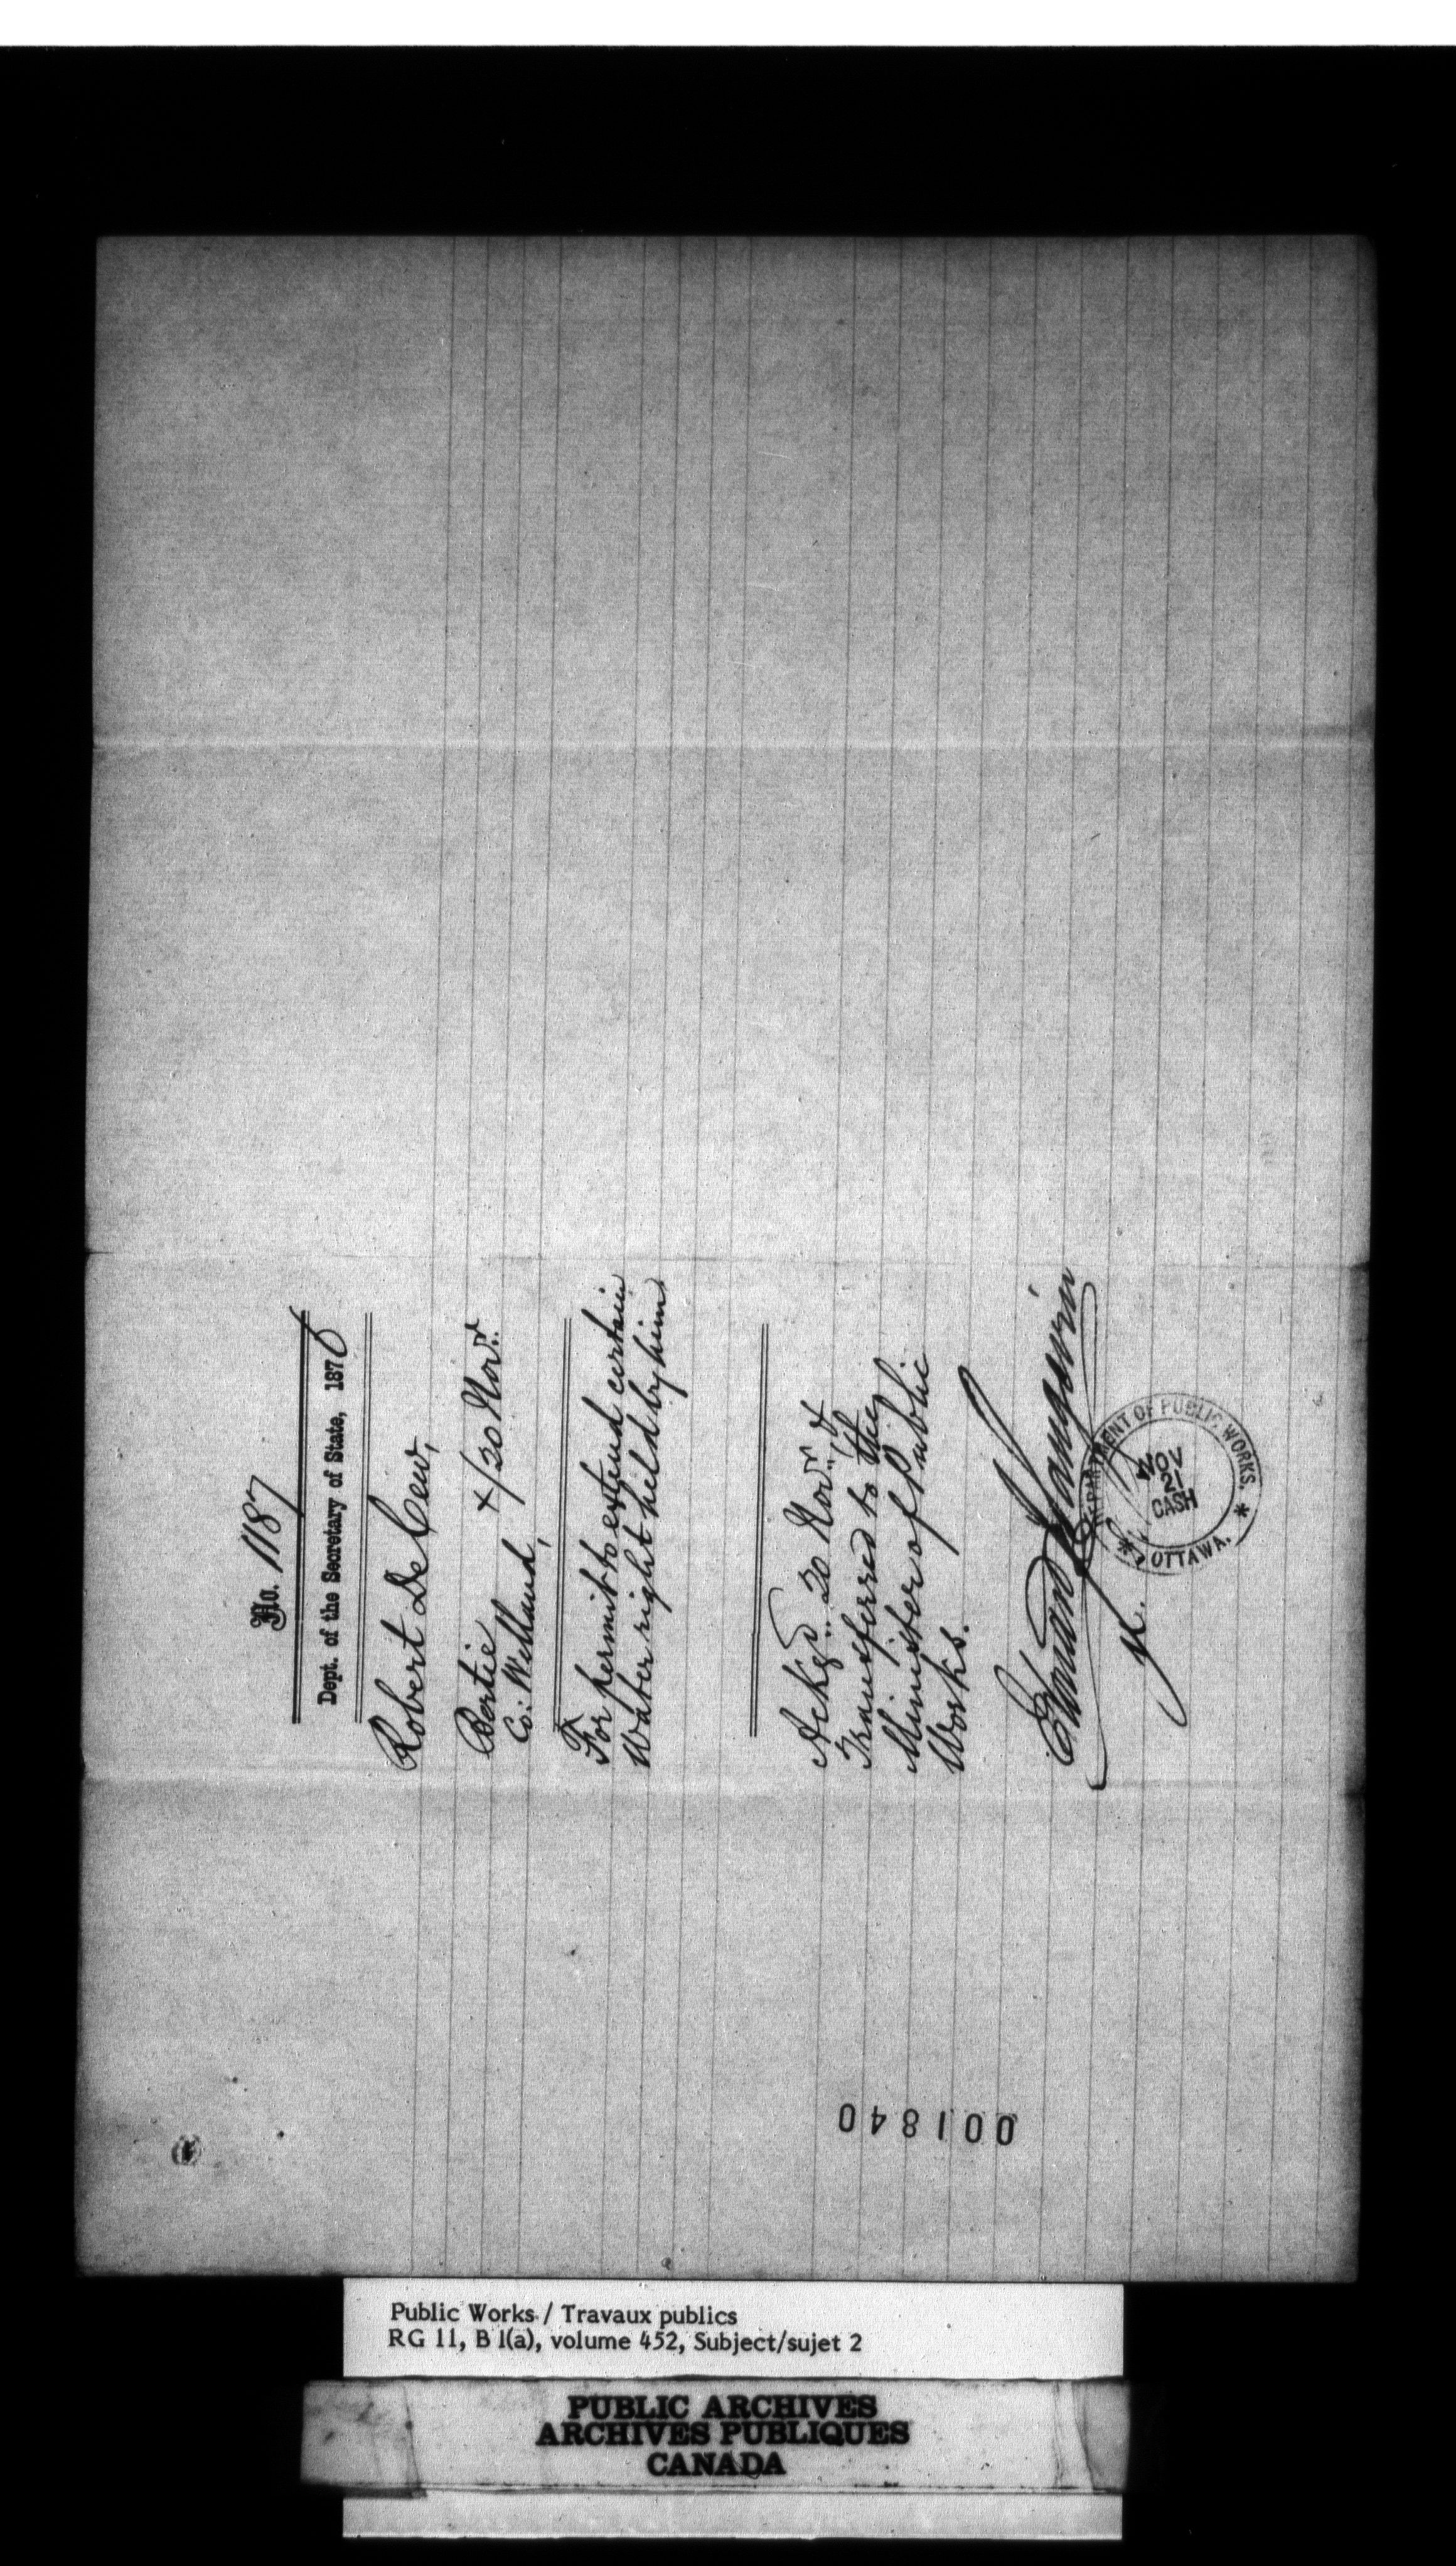 No. 1187
Dept. of the Secretary of State, 1870
Robert DeCew,
Bertie +/20 Novr.
Co: Welland,
For permit to extend certain
Water right held by him
Ackgd. 20 Novr. &
Transferred to the
Minister of Public
Works.
Edouard Langevin
DEPARTMENT OF PUBLIC WORKS.
NOV
21
CASH
* OTTAWA. *
001840
Public Works / Travaux publics
RG 11, B 1(a), volume 452, Subject/sujet 2
PUBLIC ARCHIVES
ARCHIVES PUBLIQUES
CANADA